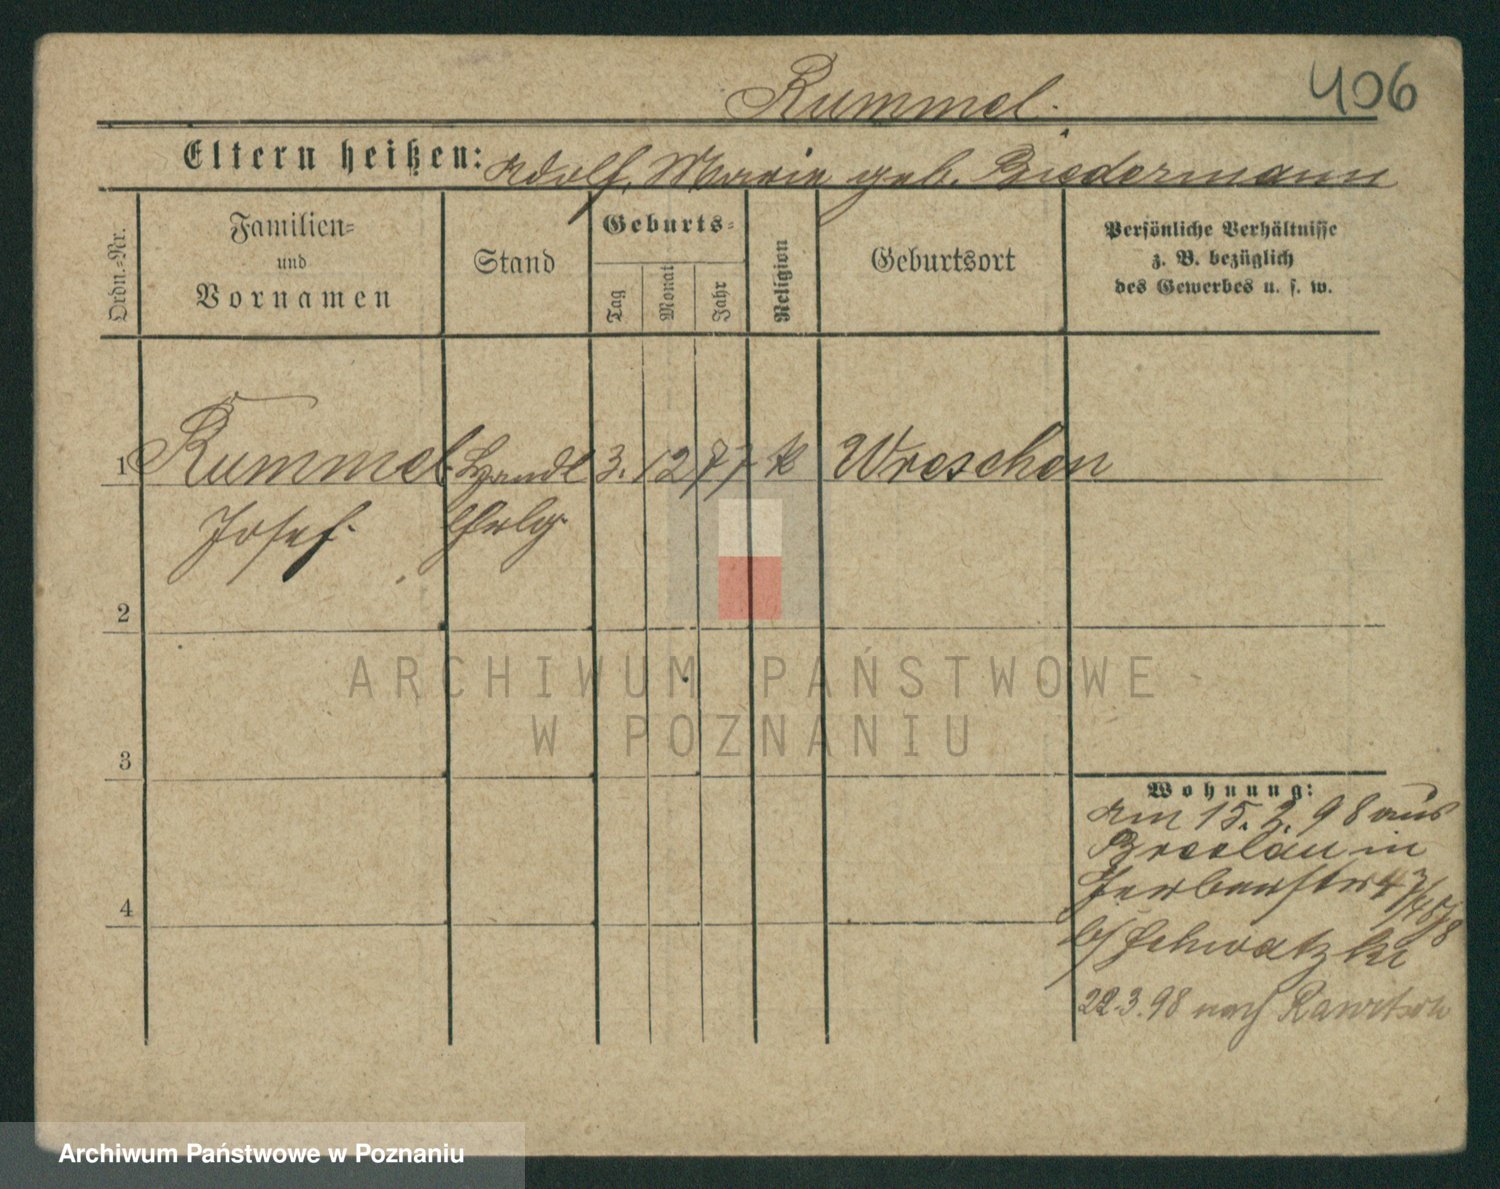 Rummel.
406
Eltern heißen: Adolf, Marie geb. Biedermann
Ordn.-Nr.
Familien-
und
Vornamen
Stand
Geburts-
Tag
Monat
Jahr
Religion
Geburtsort
Persönliche Verhältnisse
z. B. bezüglich
des Gewerbes u. s. w.
1 Rummel Handl 3. 12 77 k Wreschen
Josef. Ghrlg.
2
3
4
ARCHIWUM PAŃSTWOWE
W POZNANIU
Wohnung:
Am 15. 2. 98 aus
Breslau in
b/
22.3.98 nach Rawitsch
Archiwum Państwowe w Poznaniu